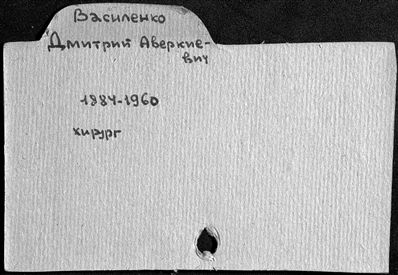 Василенко
Дмитрий Аверкие-
вич
1884-1960
хирург